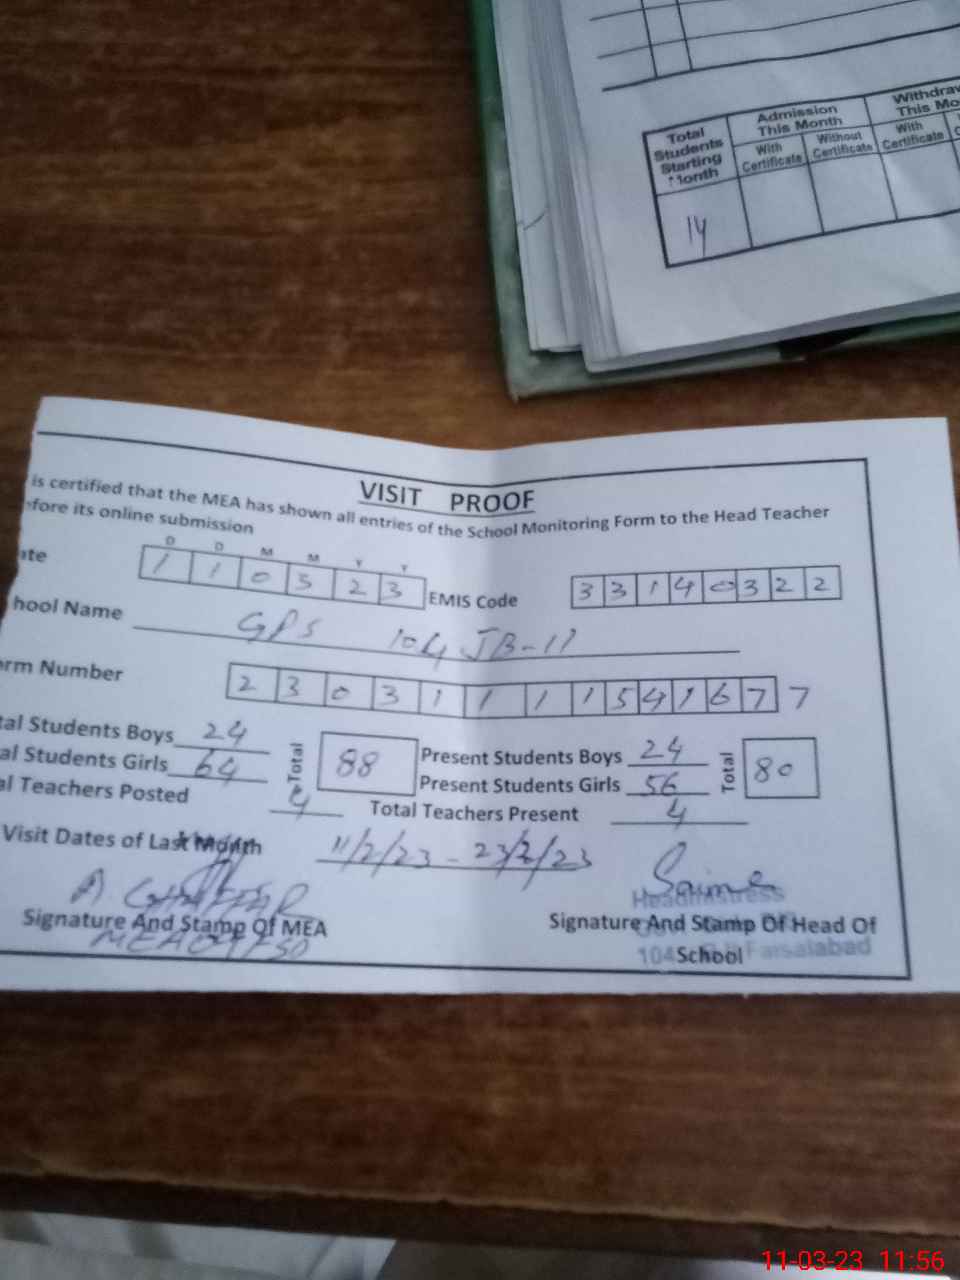 Total Students Starting Month
Admission This Month
Withdraw
This Mo
With Certificate
Without Certificate
With Certificate
14
VISIT PROOF
is certified that the MEA has shown all entries of the School Monitoring Form to the Head Teacher
fore its online submission
D D M M Y Y
ate 1 1 0 3 2 3 EMIS Code 3 3 1 4 0 3 2 2
hool Name GPS 104 JB-II
orm Number 2 3 0 3 1 1 1 1 5 4 1 6 7 7
tal Students Boys 24 Total 88 Present Students Boys 24 Total 80
al Students Girls 64 Present Students Girls 56
al Teachers Posted 4 Total Teachers Present 4
Visit Dates of Last Month 11/2/23 - 23/2/23
Saima
Headmistress
Signature And Stamp Of MEA
Signature And Stamp Of Head Of School
104 Faisalabad
11-03-23 11:56